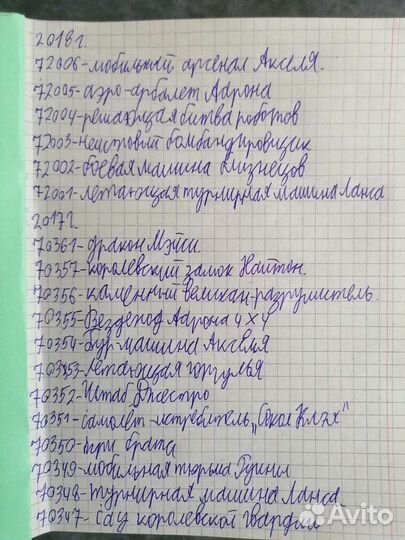 2018г.
72006-мобильный арсенал Акселя.
72005-аэро-арбалет Аарона
72004-решающая битва роботов
72003-неистовый бомбандировщик
72002-боевая машина близнецов
72001-летающая турнирная машина Ланса
2017г.
70361-дракон Мэйси.
70357-королевский замок Найтон.
70356-каменный великан-разрушитель.
70355-Вездеход Аарона 4×4
70354-Бур-машина Акселя
70353-Летающая горгулья
70352-Штаб Джестро
70351-самолет-истребитель „Сокол Клэя"
70350-три брата
70349-мобильная тюрьма Руины
70348-турнирная машина Ланса
70347-сау королевской гвардии
Avito